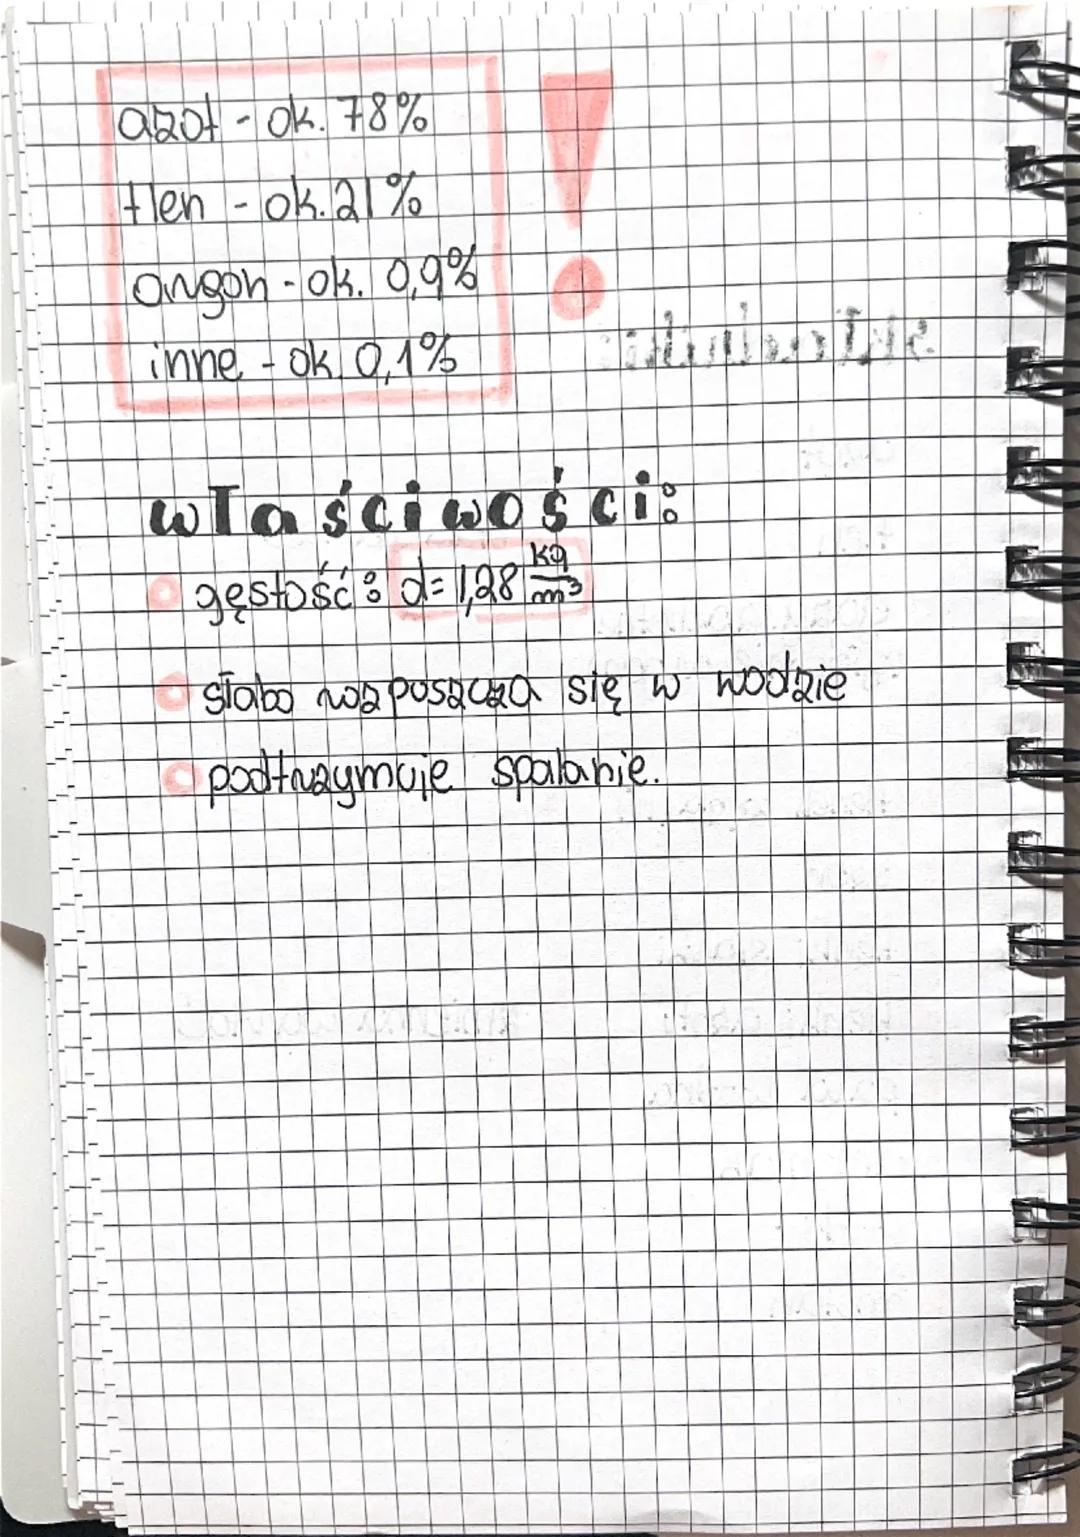 azot - ok. 78%
tlen - ok. 21%
argon - ok. 0,9%
inne - ok. 0,1%
właściwości:
gęstość: d = 1,28 kg/m³
słabo rozpuszcza się w wodzie
podtrzymuje spalanie.